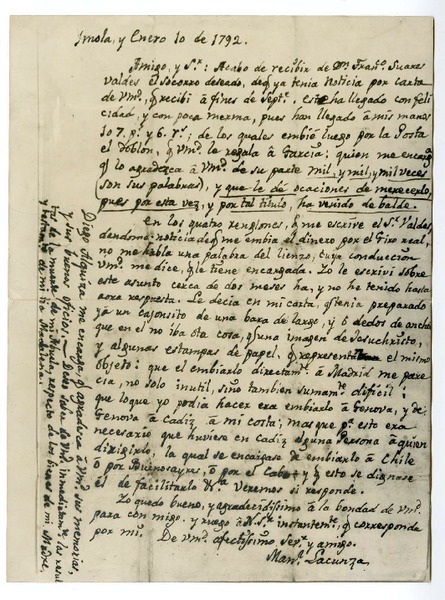 Imola, y Enero 10 de 1792.
Amigo, y S.r: Acabo de recibir de D.n Fran.co Suarez
Valdes el socorro deseado, de q.e ya tenia noticia por carta
de Vm.d, q recibi á fines de Sept.e. Este ha llegado con feli-
cidad, y con poca merma, pues han llegado á mis manos
107. p.s y 6. r.s; de los quales embié luego por la Posta
el doblon, q Vm.d le regala á Garcia; quien me encarga
q lo agradezca á Vm.d de su parte mil, y mil, y mil veces
(son sus palabras), y que le dé ocaciones de merecerlo,
pues por esta vez, y por tal titulo, ha venido de balde.
En los quatro renglones, q me escrive el S.r Valdes
dandome noticia de q me embia el dinero por el Giro real,
no me habla una palabra del lienzo, cuya conduccion
Vm.d me dice, q le tiene encargada. Yo le escrivi sobre
este asunto cerca de dos meses ha, y no he tenido hasta
aora respuesta. Le decia en mi carta, q tenia preparado
ya un caxonsito de una bara de largo, y 6 dedos de ancho
que en el no iba otra cosa, q una imagen de Jesuchristo,
y algunas estampas de papel, q representan el mismo
objeto: que el embiarlo directam.te á Madrid me pare-
cia, no solo inutil, sino tambien sumam.te dificil:
que lo que yo podia hacer era embiarlo á Genova, y de
Genova á Cadiz á mi costa; mas que p.a esto era
necesario que huviese en Cadiz alguna Persona á quien
dirigirlo, la qual se encargase de embiarlo á Chile
ó por Buenosayres, ó por el Cabo: y q esto se dignase
el de facilitarlo &.a Veremos si responde.
Yo quedo bueno, y agradecidissimo á la bondad de Vm.d
para con migo, y ruego á N. S.r instantem.te, q corresponda
por mi. De Vm.d afectissimo Ser.r y amigo.
Man.l Lacunza.
Diego Alquiza me encarga, q agradezca á Vm.d sus memorias,
y sus buenos oficios. Debo saber de Vm.d inmediatam.te las resul-
tas de la muerte de mi Abuela, respecto de los bienes de mi Madre,
y de mi tia Magdalena.